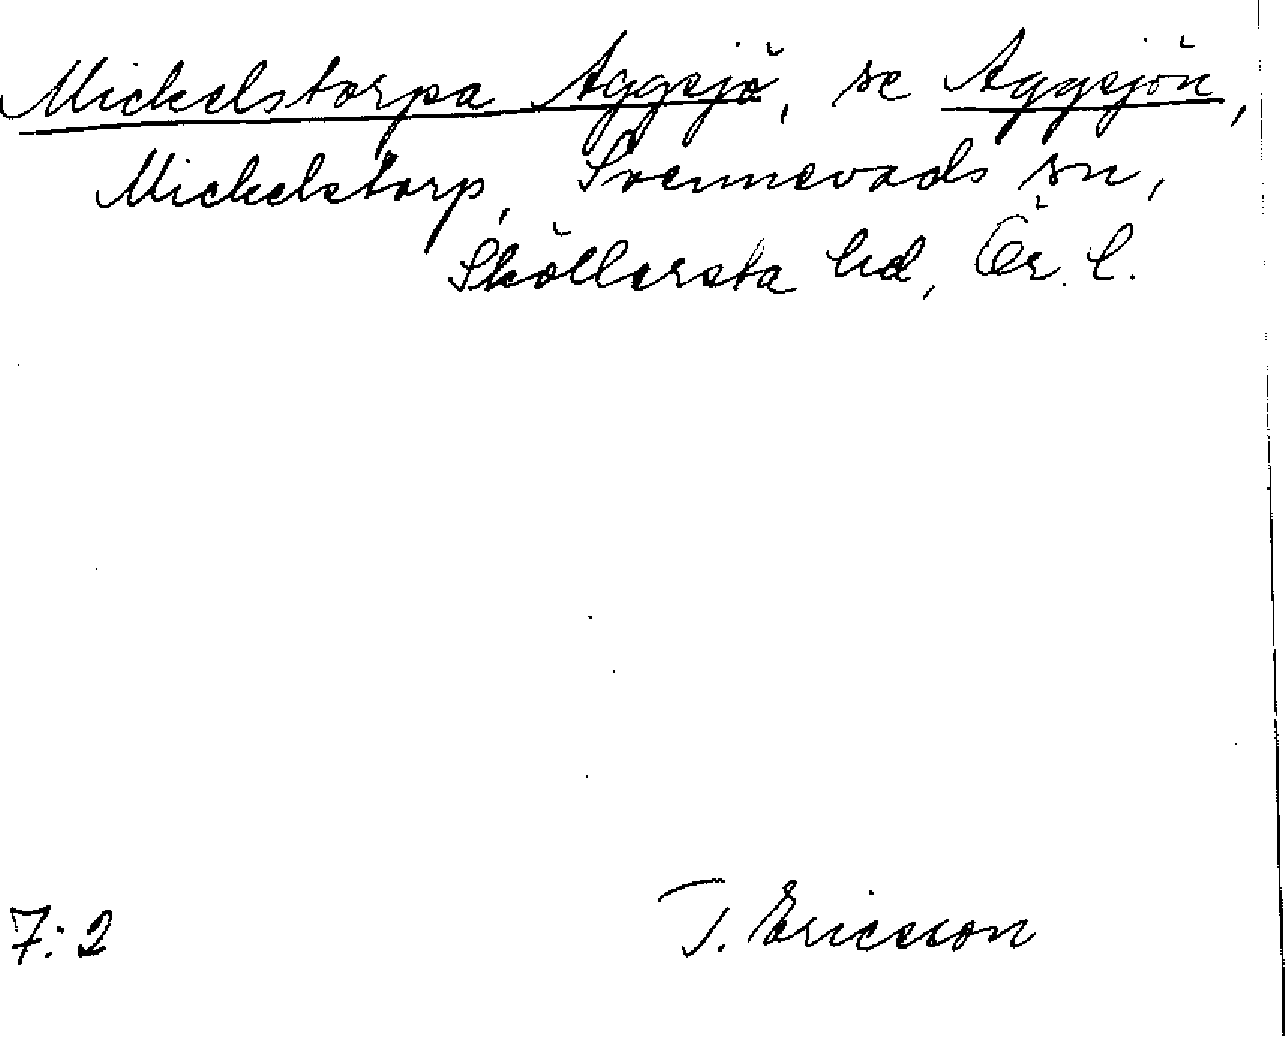 Mickelstorpa Aggsjö, se Aggsjön,
Mickelstorp, Svennevads sn,
Sköllersta hd, Ör. l.
7:2 T. Ericsson